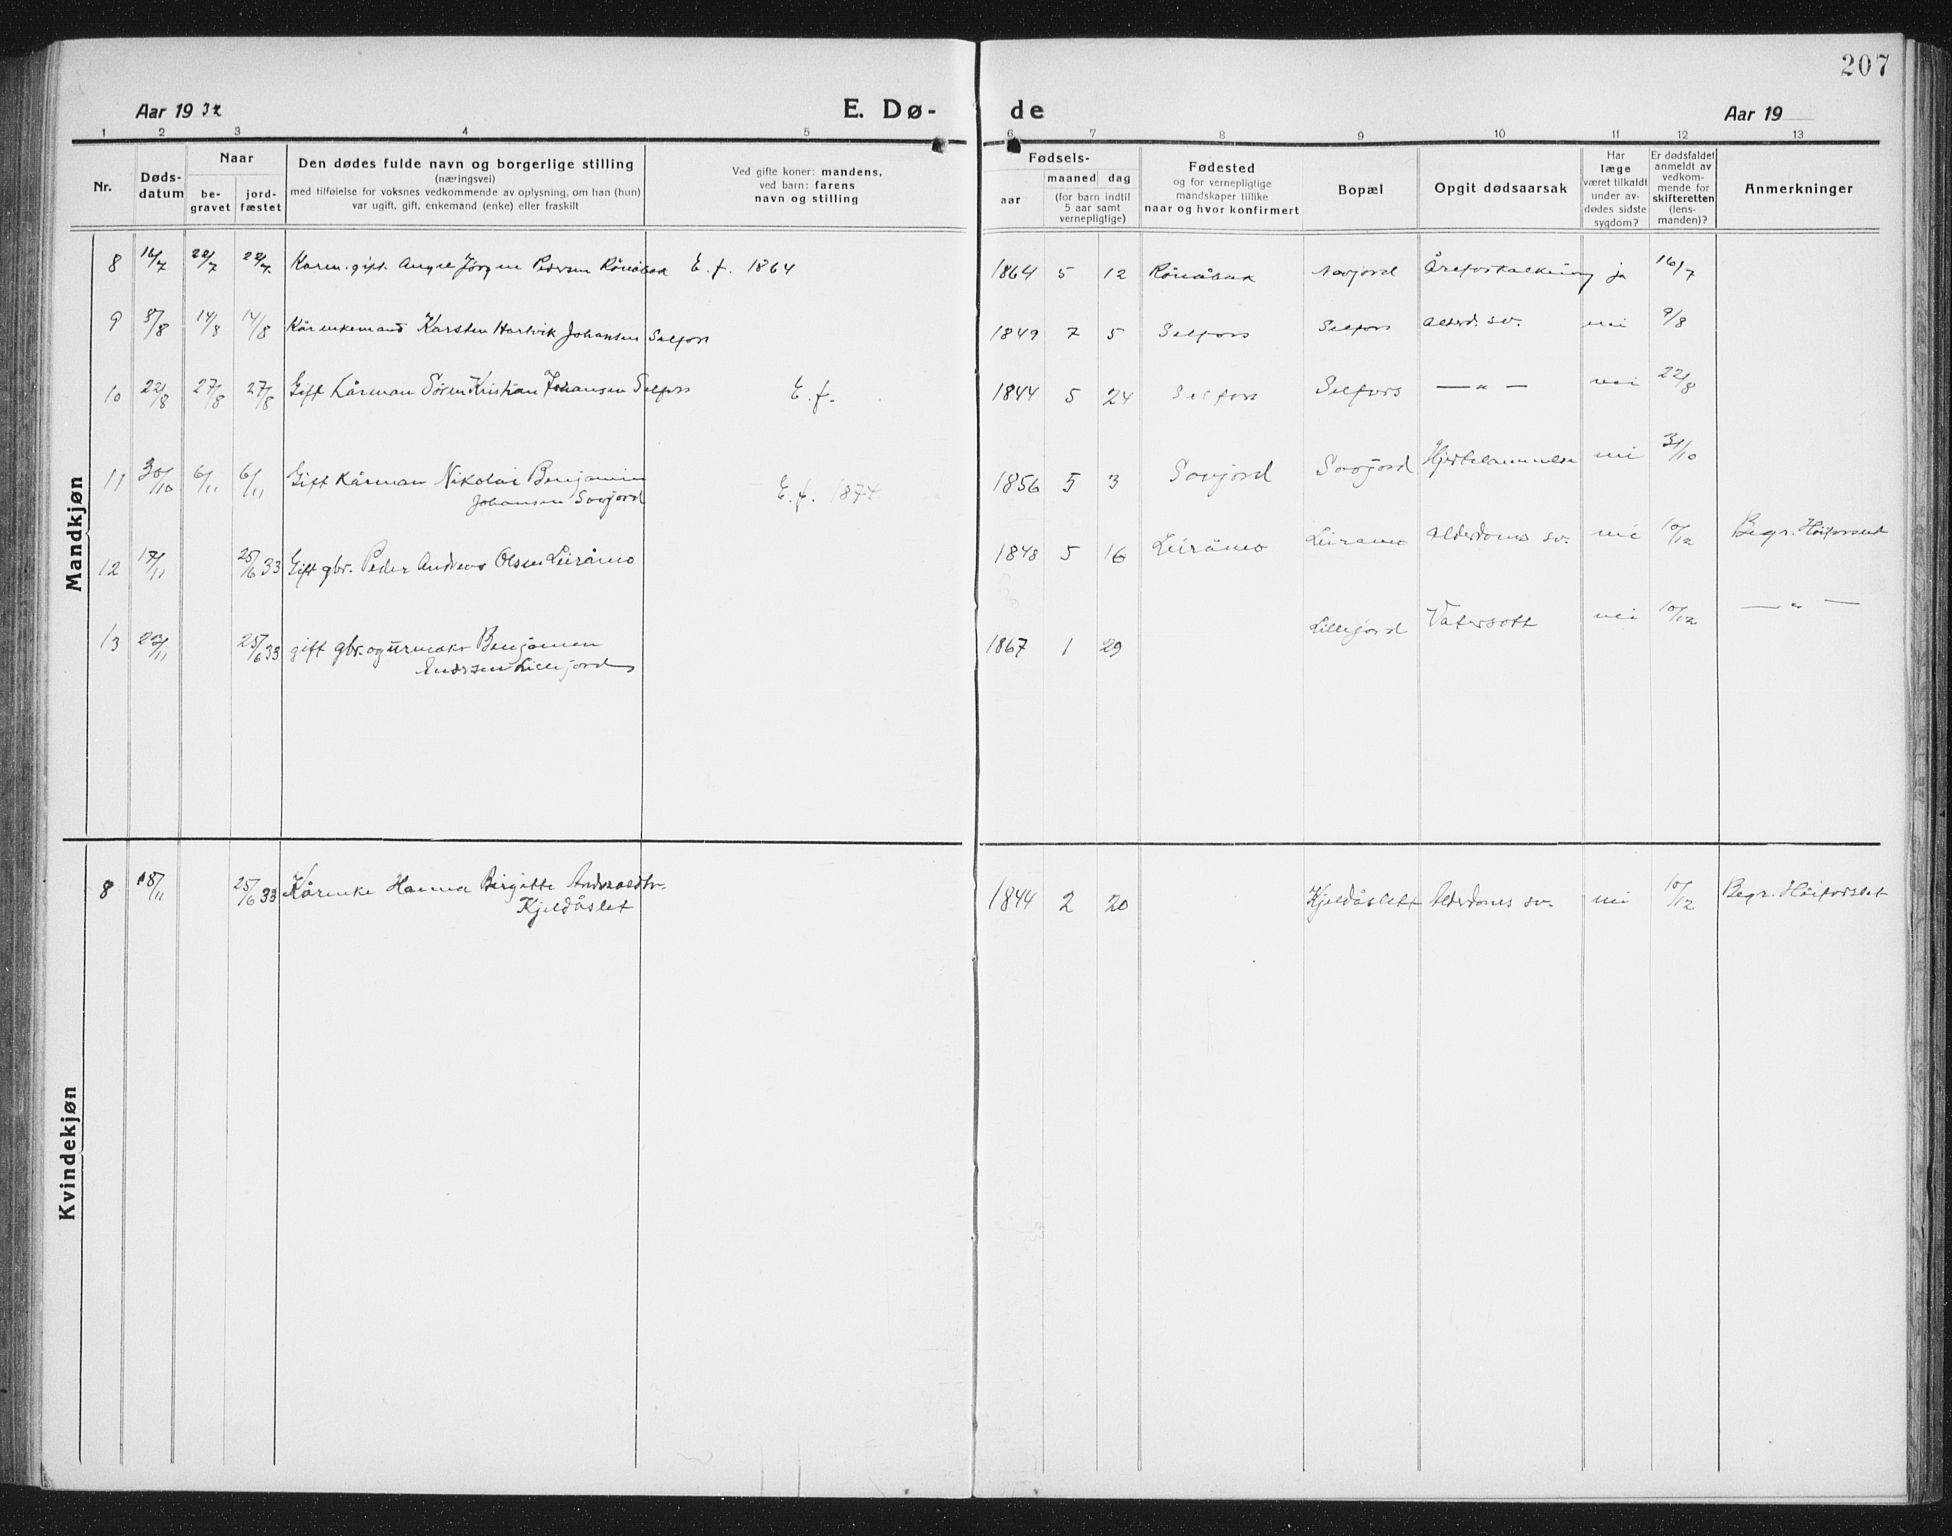 207
Aar 1932
E. Dø-
de
Aar 19
1 2 3 4 5 6 7 8 9 10 11 12 13
Nr.
Døds-
datum
Naar
be-
gravet
jord-
fæstet
Den dødes fulde navn og borgerlige stilling
(næringsvei)
med tilføielse for voksnes vedkommende av oplysning, om han (hun)
var ugift, gift, enkemand (enke) eller fraskilt
Ved gifte koner: mandens,
ved barn: farens
navn og stilling
Fødsels-
aar
maaned dag
(for barn indtil
5 aar samt
vernepligtige)
Fødested
og for vernepligtige
mandskaper tillike
naar og hvor konfirmert
Bopæl
Opgit dødsaarsak
Har
læge
været tilkaldt
under av-
dødes sidste
sygdom?
Er dødsfaldet
anmeldt av
vedkom-
mende for
skifteretten
(lens-
manden)?
Anmerkninger
Mandkjøn
8 16/7 22/7 22/7 gift. Jörgen Pedersen Rönåbak E. f. 1864 1864 5 12 Rönåbak Åreforkalkning ja 16/7
9 8/8 14/8 14/8 Kårenkemand Karsten Hartvik Johansen Selfors 1849 7 5 Selfors Selfors Alderd. sv. nei 9/8
10 22/8 27/8 27/8 Gift kårman Sören Kristian Johansen Selfors E. f. 1844 5 24 Selfors Selfors — " — nei 22/8
11 30/10 6/11 6/11 Gift Kårman Nikolai Benjamin
Johansen Sovjord E. f. 1874 1856 5 3 Sovjord Sovjord Hjertelammelse nei 31/10
12 17/11 25/6 33 Gift gbr. Peder Andreas Olsen Leiråmo 1848 5 16 Leiråmo Leiramo Alderdoms sv. nei 10/12 Begr. Höiforslet
13 25/6 33 gift gbr. og urmaker Benjamen
Andersen Lillefjord 1867 1 29 Lillefjord Vatersott nei 10/12 — " —
Kvindekjøn
8 18/11 25/6 33 Kårenke Hanna Birgitte
Kjeldåslet 1844 2 20 Kjeldåslett Alderdoms sv. nei 10/12 Begr. Höiforslet